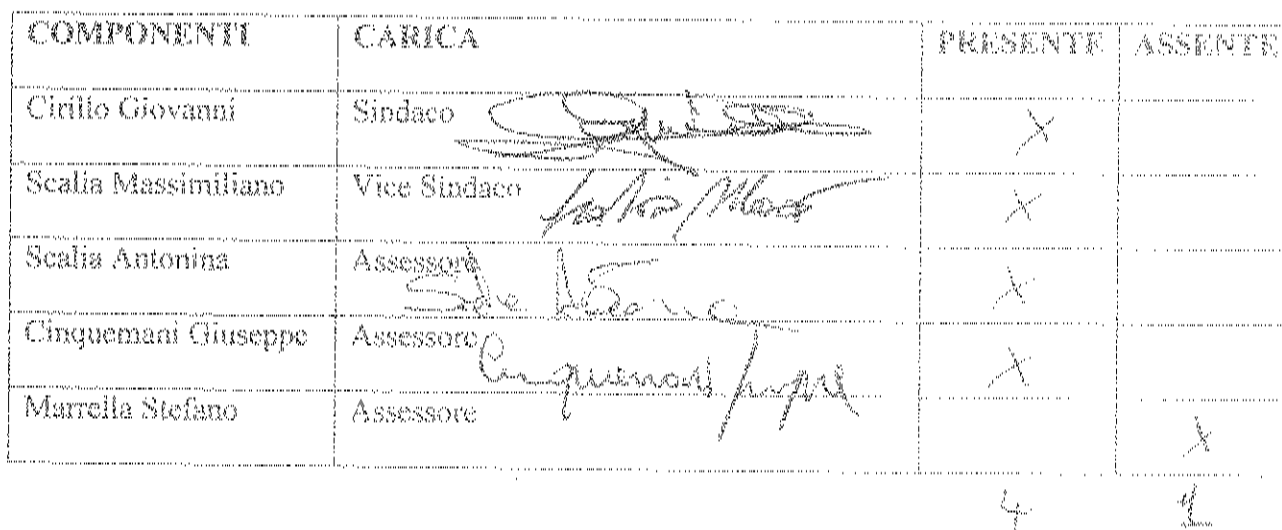 COMPONENTI CARICA PRESENTE ASSENTE
Cirillo Giovanni Sindaco X
Scalia Massimiliano Vice Sindaco X
Scalia Antonina Assessore X
Cinquemani Giuseppe Assessore X
Marrella Stefano Assessore X
4 1